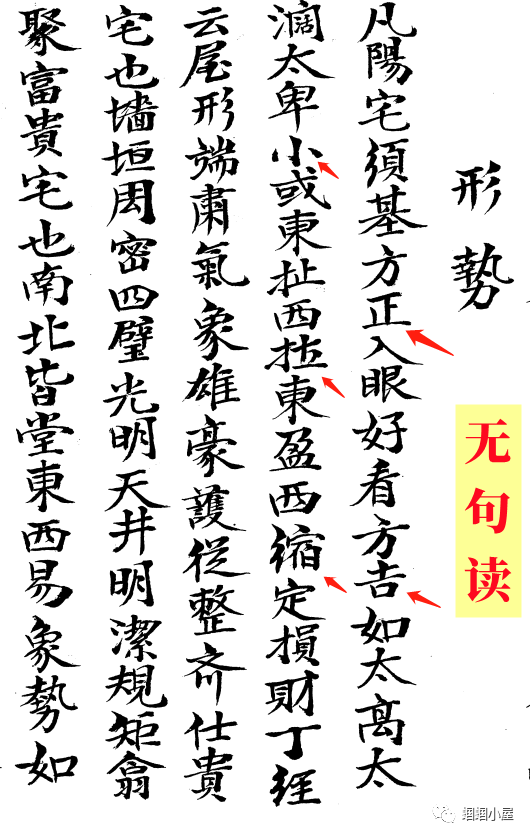 形勢
凡陽宅須基方正入眼好看方吉如太高太
濶太卑小或東扯西拉東盈西縮定損財丁經
云屋形端肅氣象雄豪護從整齊仕貴
宅也墻垣周密四壁光明天井明潔規矩翕
聚富貴宅也南北皆堂東西易象勢如
无句读
蝈蝈小屋